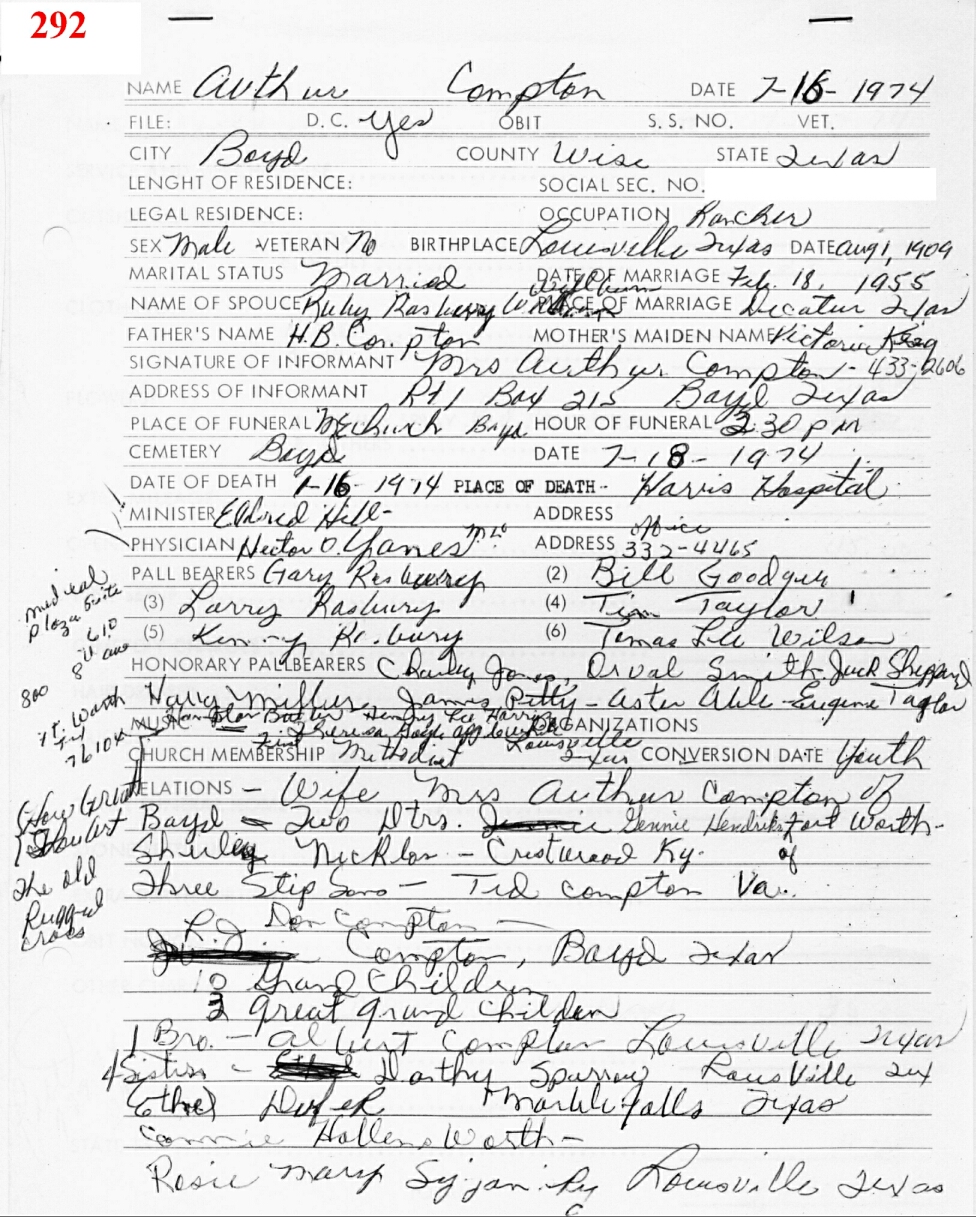 292
NAME Authur Compton DATE 7-16-1974
FILE: D.C. Yes OBIT S.S. NO. VET.
CITY Boyd COUNTY Wise STATE Texas
LENGHT OF RESIDENCE: SOCIAL SEC. NO.
LEGAL RESIDENCE: OCCUPATION Rancher
SEX Male VETERAN No BIRTHPLACE Louisville Texas DATE Aug 1, 1909
MARITAL STATUS Married DATE OF MARRIAGE Feb. 18, 1955
NAME OF SPOUCE Ruby Rasberry PLACE OF MARRIAGE Decatur Texas
FATHER'S NAME H.B. Compton MOTHER'S MAIDEN NAME Victoria
SIGNATURE OF INFORMANT Mrs Authur Compton - 433-2606
ADDRESS OF INFORMANT Rt 1 Box 215 Boyd Texas
PLACE OF FUNERAL Me Church Boyd HOUR OF FUNERAL 2:30 pm
CEMETERY Boyd DATE 7-18-1974
DATE OF DEATH 7-16-1974 PLACE OF DEATH- Harris Hospital
MINISTER Eldred Hill- ADDRESS office
PHYSICIAN Hector O. Yanes M.D. ADDRESS 332-4465
PALL BEARERS Gary Rasberry (2) Bill Goodger
(3) Larry Rasbury (4) Tim Taylor
(5) Kenny Rasbury (6) Tomas Lee Wilson
medical
plaza Suite
610
8th ave
800
Ft. Worth
Tex
76104
HONORARY PALLBEARERS Charley Jones, Orval Smith, Jack Sheppard
Harry Miller, James Pitty - Aster Able - Eugene Taylor
Hampton Butler Henry Lee Harry
MUSIC Theresa Gayle ORGANIZATIONS
CHURCH MEMBERSHIP First Methodist Louisville Texas CONVERSION DATE Youth
RELATIONS - Wife Mrs Authur Compton of
Boyd - Two Dtrs. Gennie Hendricks Fort Worth -
Shirley Nicklos - Crestwood Ky. of
Three Step Sons - Ted Compton Va.
Don Compton -
L.J. Compton, Boyd Texas
10 Grand Children
3 Great Grand Children
1 Bro. - Albert Compton Louisville Texas
4 Sisters - Dorthy Sparrow Louisville Tex
Ethel Marble Falls Texas
Connie Hollensworth -
Rosie Mary Louisville Texas
How Great
Thou Art
The old
Rugged
cross